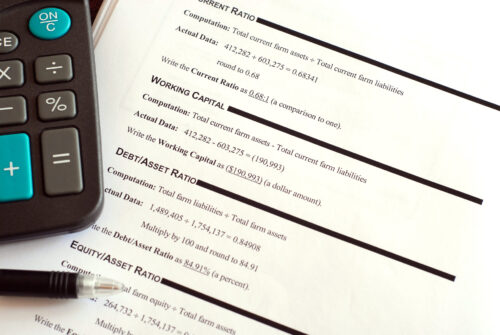 ON/C
CE
X
÷
%
+
=
CURRENT RATIO
Computation: Total current farm assets ÷ Total current farm liabilities
Actual Data: 412,282 ÷ 603,275 = 0.68341
round to 0.68
Write the Current Ratio as 0.68:1 (a comparison to one).
WORKING CAPITAL
Computation: Total current farm assets - Total current farm liabilities
Actual Data: 412,282 - 603,275 = (190,993)
Write the Working Capital as ($190,993) (a dollar amount).
DEBT/ASSET RATIO
Computation: Total farm liabilities ÷ Total farm assets
Actual Data: 1,489,405 ÷ 1,754,137 = 0.84908
Multiply by 100 and round to 84.91
Write the Debt/Asset Ratio as 84.91% (a percent).
EQUITY/ASSET RATIO
Computation: Total farm equity ÷ Total farm assets
264,732 ÷ 1,754,137 =
Multiply by
Write the